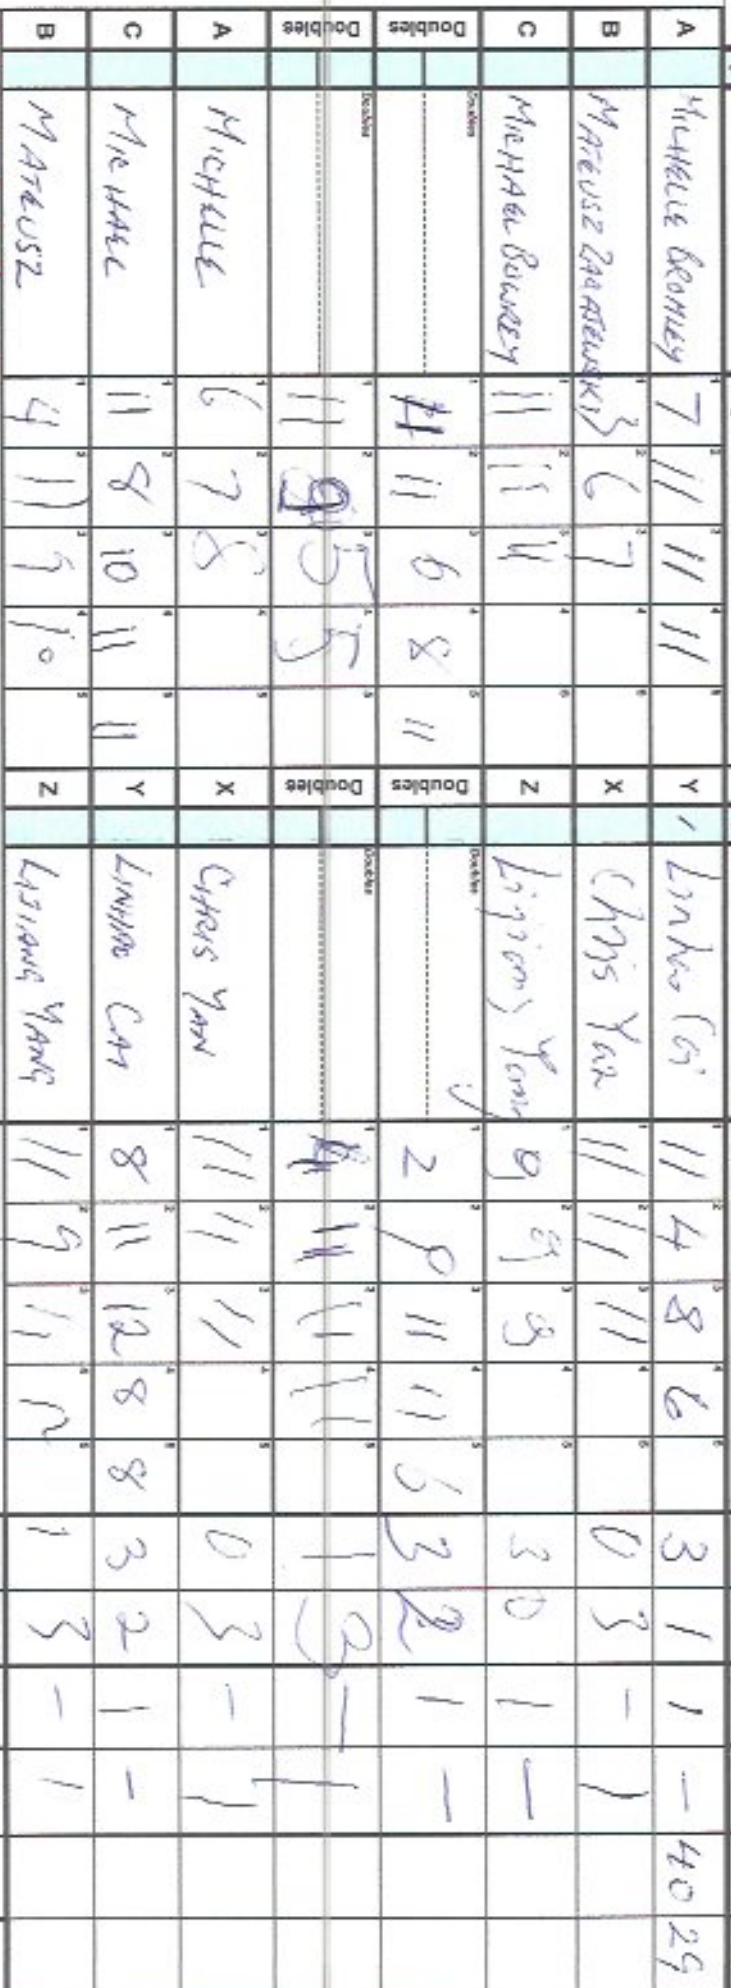 A MICHELLE BROMLEY 7 11 11 11 Y Linhao Cai 11 4 8 6 3 1 1 - 40 29
B MATEUSZ 3 6 7 X Chris Yan 11 11 11 0 3 - 1
C MICHAEL BOWREY 11 11 11 Z Lijiang Yang 9 9 9 3 0 1 -
Doubles Doubles 11 11 6 8 11 Doubles Doubles 2 9 11 11 6 3 2 1 -
Doubles Doubles 11 9 5 5 Doubles Doubles 11 11 11 1 3 - 1
A MICHELLE 6 7 8 X CHRIS YAN 11 11 11 0 3 - 1
C MICHAEL 11 8 10 11 11 Y LINHAO CAI 8 11 12 8 8 3 2 1 -
B MATEUSZ 4 11 9 10 Z LIJIANG YANG 11 9 11 1 3 - 1